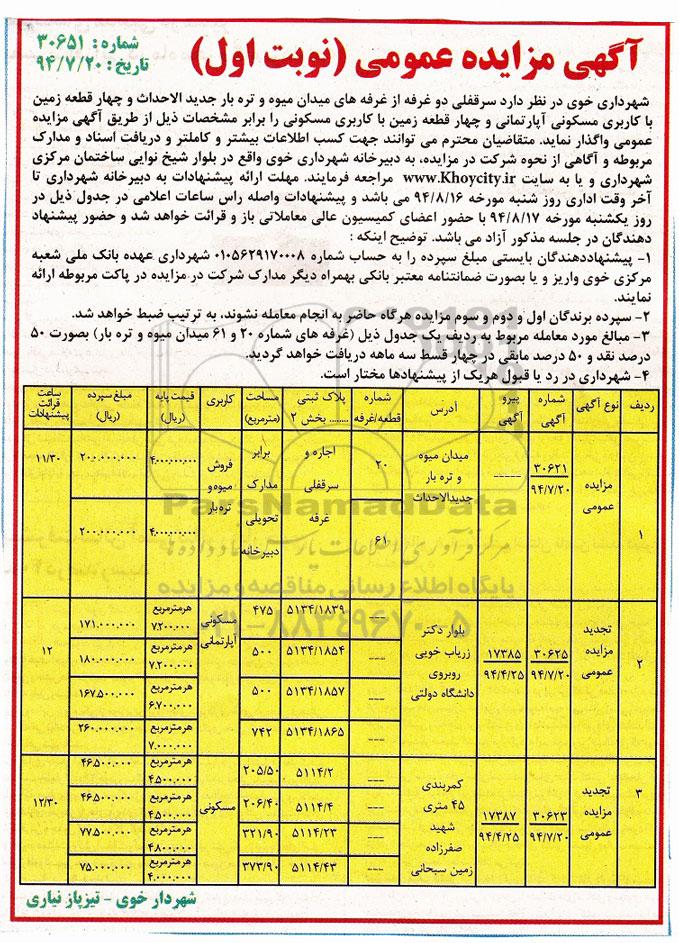 آگهی مزایده عمومی (نوبت اول)
شماره: ۳۰۶۵۱
تاریخ: ۹۴/۷/۲۰
شهرداری خوی در نظر دارد سرقفلی دو غرفه از غرفه های میدان میوه و تره بار جدید الاحداث و چهار قطعه زمین
با کاربری مسکونی آپارتمانی و چهار قطعه زمین با کاربری مسکونی را برابر مشخصات ذیل از طریق آگهی مزایده
عمومی واگذار نماید. متقاضیان محترم می توانند جهت کسب اطلاعات بیشتر و کاملتر و دریافت اسناد و مدارک
مربوطه و آگاهی از نحوه شرکت در مزایده، به دبیرخانه شهرداری خوی واقع در بلوار شیخ نوایی ساختمان مرکزی
شهرداری و یا به سایت www.Khoycity.ir مراجعه فرمایند. مهلت ارائه پیشنهادات به دبیرخانه شهرداری تا
آخر وقت اداری روز شنبه مورخه ۹۴/۸/۱۶ می باشد و پیشنهادات واصله راس ساعات اعلامی در جدول ذیل در
روز یکشنبه مورخه ۹۴/۸/۱۷ با حضور اعضای کمیسیون عالی معاملاتی باز و قرائت خواهد شد و حضور پیشنهاد
دهندگان در جلسه مذکور آزاد می باشد. توضیح اینکه :
۱- پیشنهاددهندگان بایستی مبلغ سپرده را به حساب شماره ۰۱۰۵۶۲۹۱۷۰۰۰۸ شهرداری عهده بانک ملی شعبه
مرکزی خوی واریز و یا بصورت ضمانتنامه معتبر بانکی بهمراه دیگر مدارک شرکت در مزایده در پاکت مربوطه ارائه
نمایند.
۲- سپرده برندگان اول و دوم و سوم مزایده هرگاه حاضر به انجام معامله نشوند، به ترتیب ضبط خواهد شد.
۳- مبالغ مورد معامله مربوط به ردیف یک جدول ذیل (غرفه های شماره ۲۰ و ۶۱ میدان میوه و تره بار) بصورت ۵۰
درصد نقد و ۵۰ درصد مابقی در چهار قسط سه ماهه دریافت خواهد گردید.
۴- شهرداری در رد یا قبول هریک از پیشنهادها مختار است.
ردیف | نوع آگهی | شماره آگهی | پیرو آگهی | آدرس | شماره قطعه/غرفه | پلاک ثبتی ....... بخش ۲ | مساحت (مترمربع) | کاربری | قیمت پایه (ریال) | مبلغ سپرده (ریال) | ساعت قرائت پیشنهادات
۱ | مزایده عمومی | ۳۰۶۲۱ ۹۴/۷/۲۰ | ----- | میدان میوه و تره بار جدیدالاحداث | ۲۰ | اجاره و سرقفلی غرفه | برابر مدارک تحویلی دبیرخانه | فروش میوه و تره بار | ۴،۰۰۰،۰۰۰،۰۰۰ | ۲۰۰،۰۰۰،۰۰۰ | ۱۱/۳۰
۶۱ | ۴،۰۰۰،۰۰۰،۰۰۰ | ۲۰۰،۰۰۰،۰۰۰
۲ | تجدید مزایده عمومی | ۳۰۶۲۵ ۹۴/۷/۲۰ | ۱۷۳۸۵ ۹۴/۴/۲۵ | بلوار دکتر زریاب خویی روبروی دانشگاه دولتی | --- | ۵۱۳۴/۱۸۳۹ | ۴۷۵ | مسکونی آپارتمانی | هرمترمربع ۷،۲۰۰،۰۰۰ | ۱۷۱،۰۰۰،۰۰۰ | ۱۲
--- | ۵۱۳۴/۱۸۵۴ | ۵۰۰ | هرمترمربع ۷،۲۰۰،۰۰۰ | ۱۸۰،۰۰۰،۰۰۰
--- | ۵۱۳۴/۱۸۵۷ | ۵۰۰ | هرمترمربع ۶،۷۰۰،۰۰۰ | ۱۶۷،۵۰۰،۰۰۰
--- | ۵۱۳۴/۱۸۶۵ | ۷۴۲ | هرمترمربع ۷،۰۰۰،۰۰۰ | ۲۶۰،۰۰۰،۰۰۰
۳ | تجدید مزایده عمومی | ۳۰۶۲۳ ۹۴/۷/۲۰ | ۱۷۳۸۷ ۹۴/۴/۲۵ | کمربندی ۴۵ متری شهید صفرزاده زمین سبحانی | --- | ۵۱۱۴/۲ | ۲۰۵/۵۰ | مسکونی | هرمترمربع ۴،۵۰۰،۰۰۰ | ۴۶،۵۰۰،۰۰۰ | ۱۲/۳۰
--- | ۵۱۱۴/۴ | ۲۰۶/۴۰ | هرمترمربع ۴،۵۰۰،۰۰۰ | ۴۶،۵۰۰،۰۰۰
--- | ۵۱۱۴/۲۳ | ۳۲۱/۹۰ | هرمترمربع ۴،۸۰۰،۰۰۰ | ۷۷،۵۰۰،۰۰۰
--- | ۵۱۱۴/۴۳ | ۳۷۳/۹۰ | هرمترمربع ۴،۰۰۰،۰۰۰ | ۷۵،۰۰۰،۰۰۰
ParsNamadData
پایگاه اطلاع رسانی مناقصه و مزایده
شهردار خوی - تیزپاز نیاری